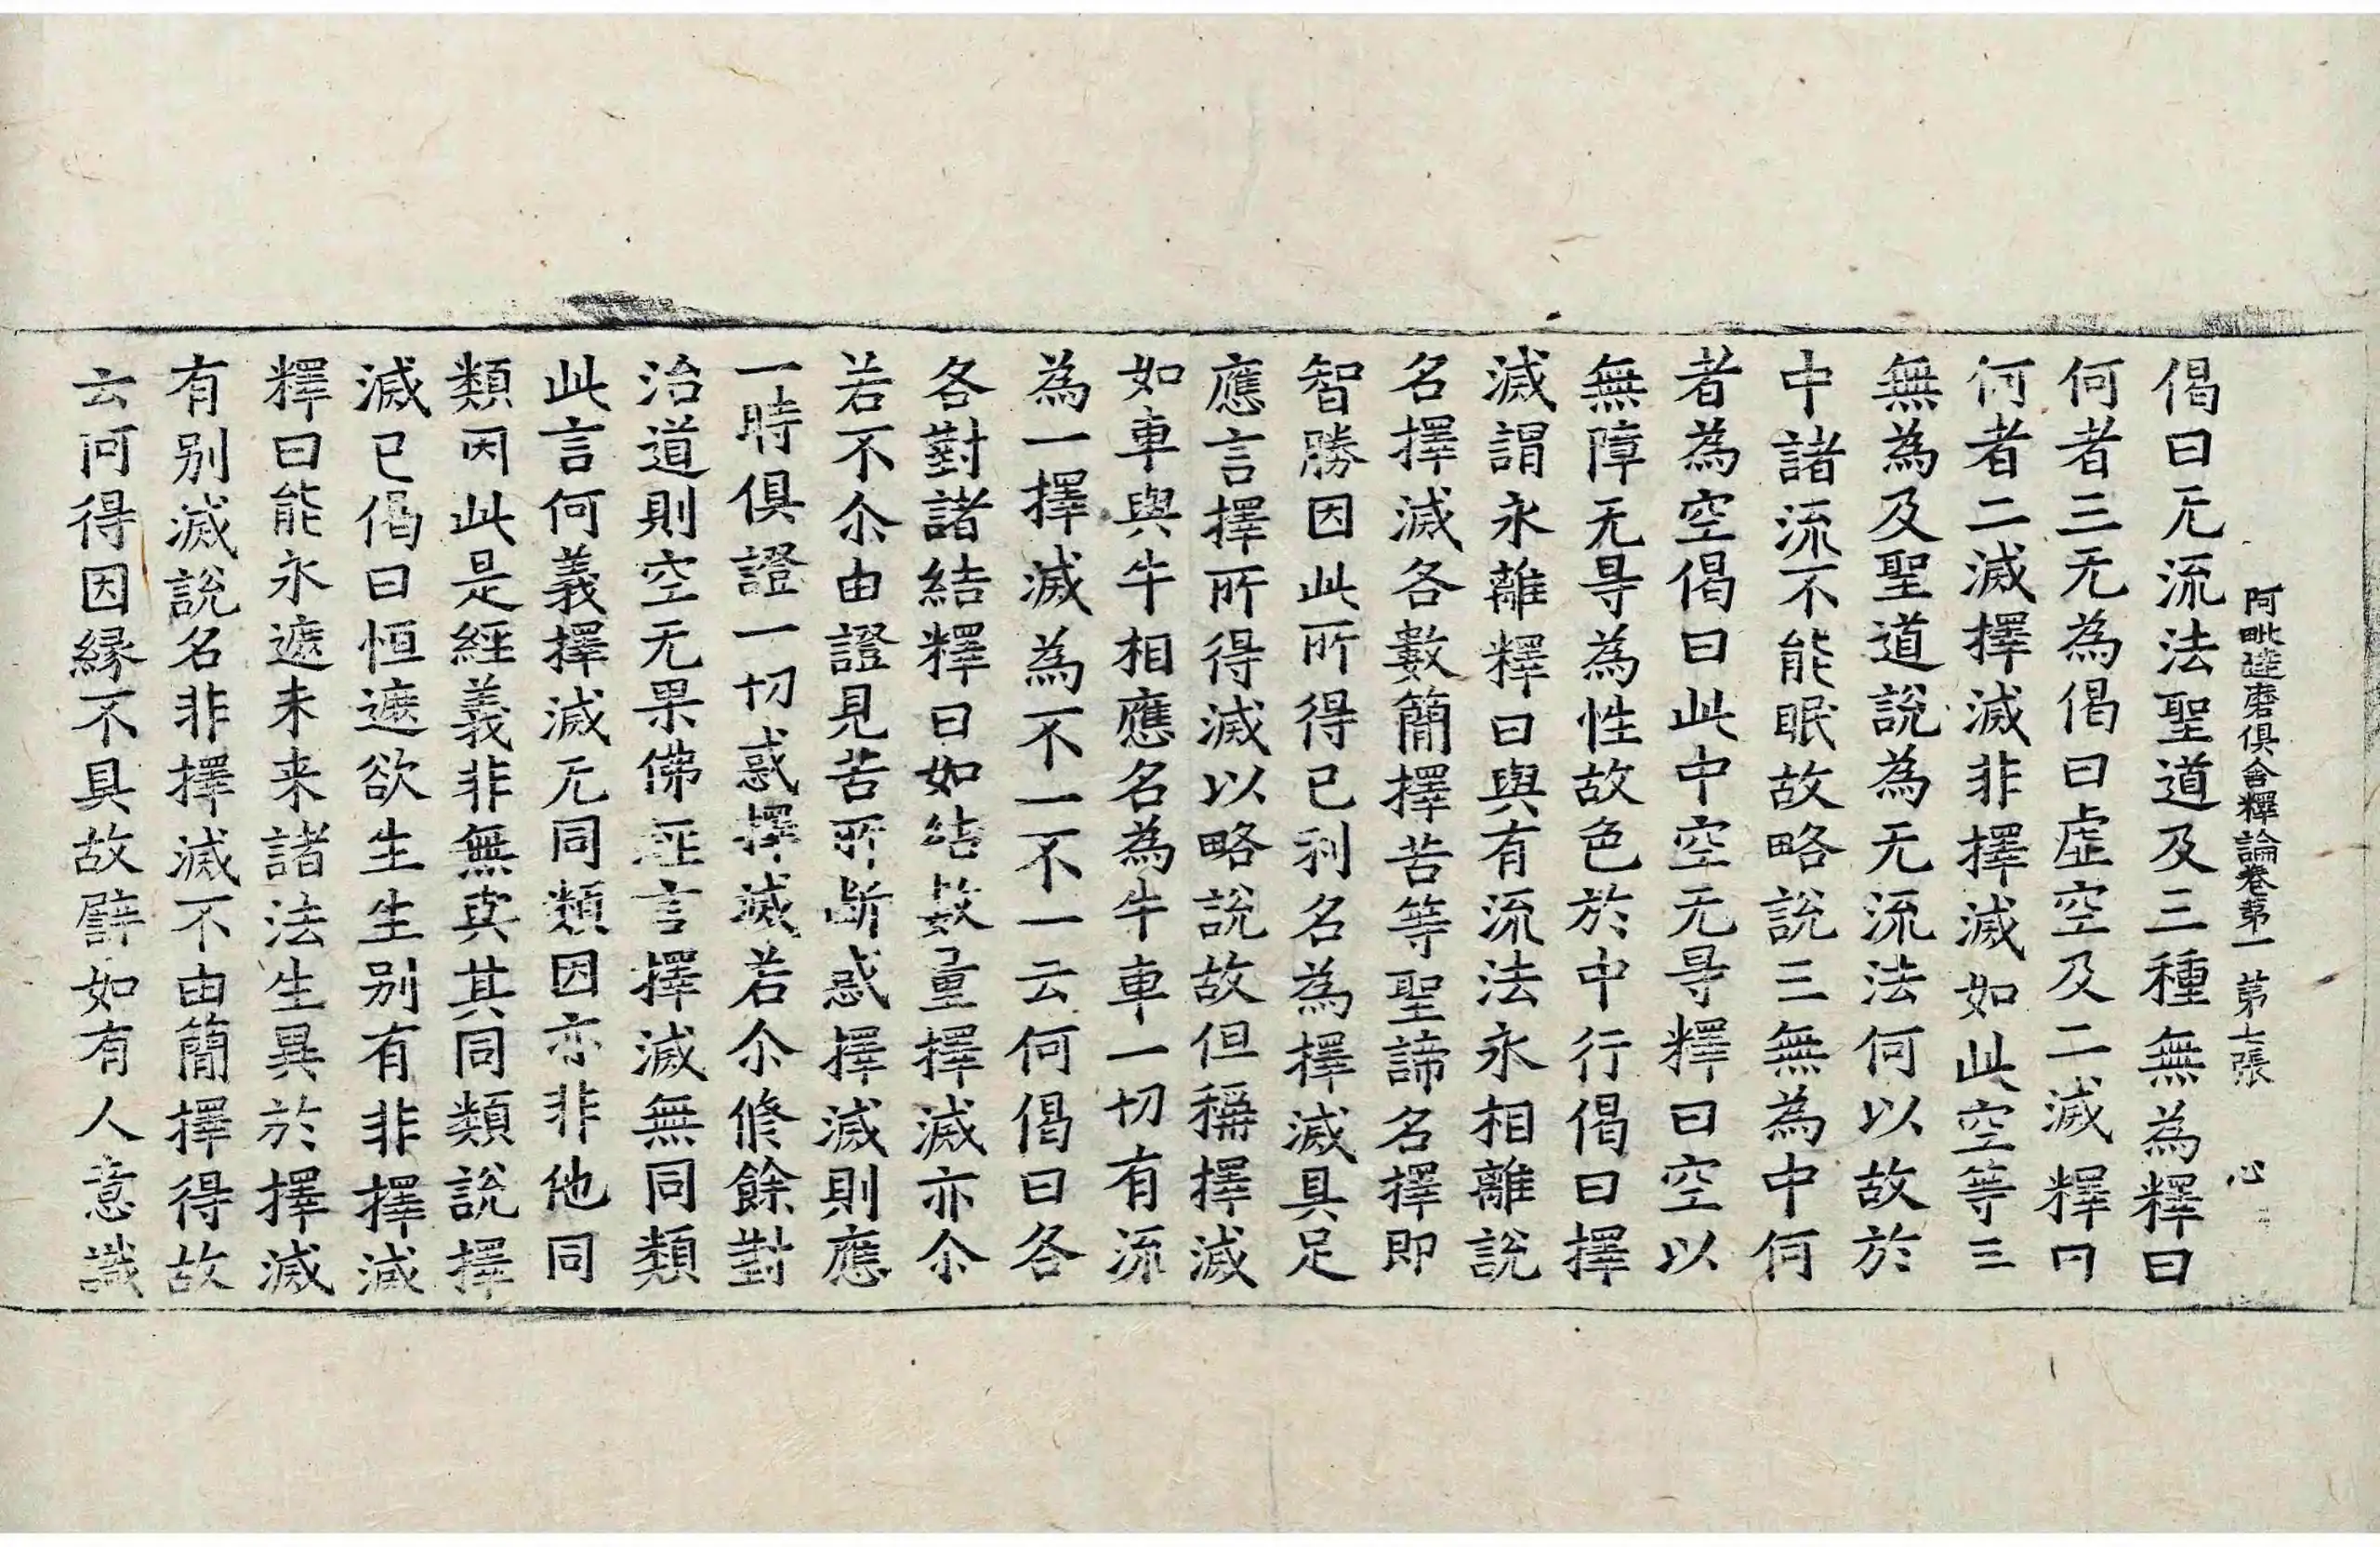 阿毗達磨俱舍釋論卷第一　第七張　心
偈曰无流法聖道及三種無為釋曰
何者三无為偈曰虛空及二滅釋曰
何者二滅擇滅非擇滅如此空等三
無為及聖道說為无流法何以故於
中諸流不能眠故略說三無為中何
者為空偈曰此中空无㝵釋曰空以
無障无㝵為性故色於中行偈曰擇
滅謂永離釋曰與有流法永相離說
名擇滅各數簡擇苦等聖諦名擇即
智勝因此所得已利名為擇滅具足
應言擇所得滅以略說故但稱擇滅
如車與牛相應名為牛車一切有流
為一擇滅為不一不一云何偈曰各
各對諸結釋曰如結數量擇滅亦尒
若不尒由證見苦所斷惑擇滅則應
一時俱證一切惑擇滅若尒修餘對
治道則空无果佛經言擇滅無同類
此言何義擇滅无同類因亦非他同
類因此是經義非無與其同類說擇
滅已偈曰恒遮欲生生別有非擇滅
釋曰能永遮未来諸法生異於擇滅
有別滅說名非擇滅不由簡擇得故
云何得因縁不具故譬如有人意識